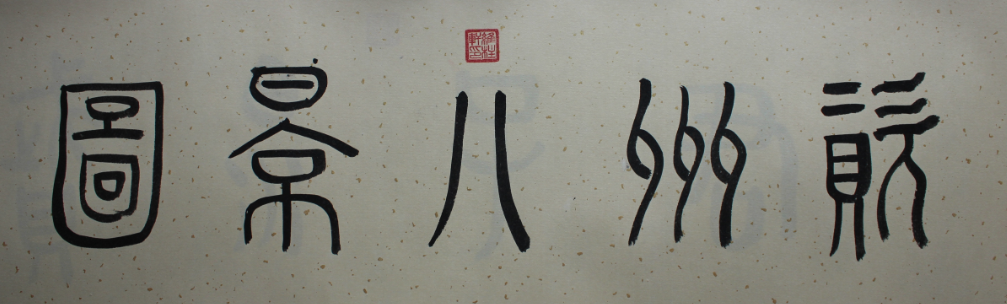 資州八景圖